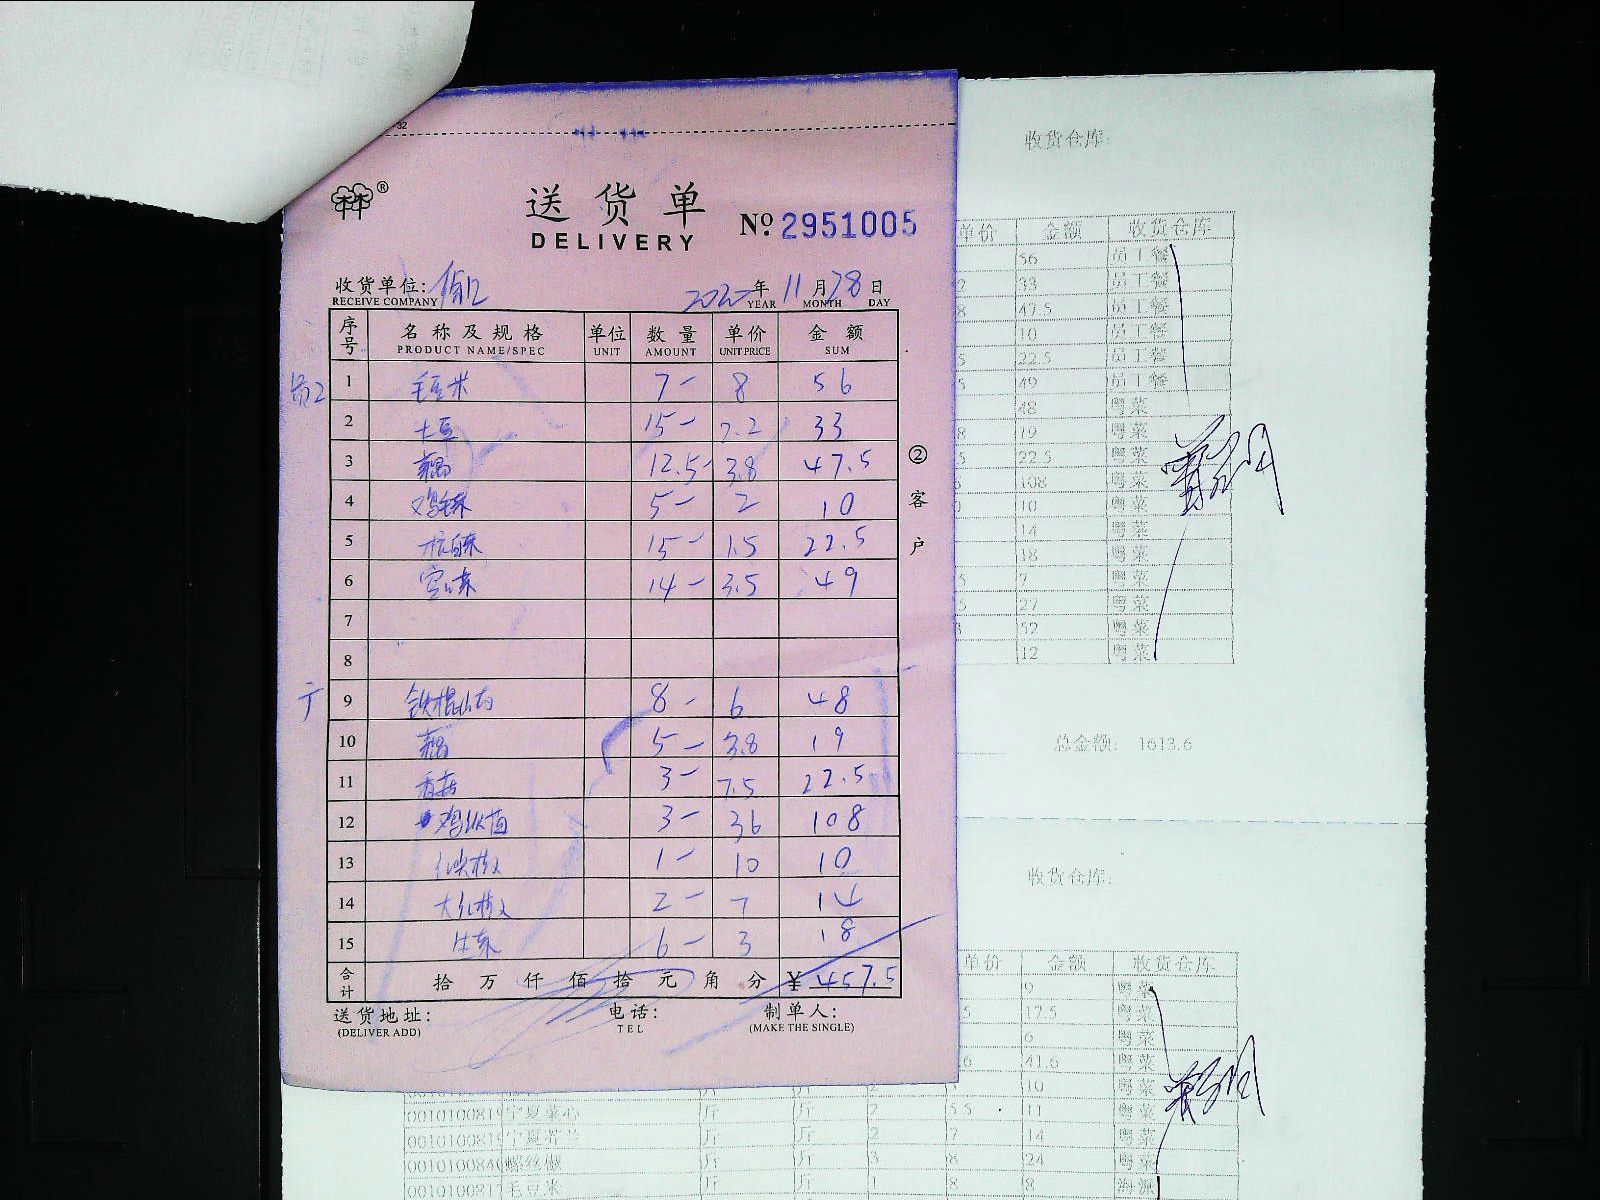 32
®
送货单
DELIVERY
No. 2951005
收货单位:
RECEIVE COMPANY
2020年 11月 28日
YEAR MONTH DAY
序号 名称及规格 单位 数量 单价 金额
PRODUCT NAME/SPEC UNIT AMOUNT UNIT PRICE SUM
员工
1 毛豆米 7- 8 56
2 土豆 15- 2.2 33
3 藕 12.5- 3.8 47.5
4 5- 2 10
5 15- 1.5 22.5
6 14- 3.5 49
7
8
9 铁棍山药 8- 6 48
10 藕 5- 3.8 19
11 香菇 3- 7.5 22.5
12 鸡纵菌 3- 36 108
13 1- 10 10
14 大红椒 2- 7 14
15 6- 3 18
合计 拾 万 仟 佰 拾 元 角 分 ¥ 457.5
送货地址: 电话: 制单人:
(DELIVER ADD) TEL (MAKE THE SINGLE)
② 客户
收货仓库:
单价 金额 收货仓库
56 员工餐
2 33 员工餐
8 47.5 员工餐
10 员工餐
5 22.5 员工餐
5 49 员工餐
48 粤菜
8 19 粤菜
5 22.5 粤菜
108 粤菜
10 粤菜
14 粤菜
18 粤菜
5 7 粤菜
5 27 粤菜
52 粤菜
12 粤菜
总金额: 1613.6
收货仓库:
单价 金额 收货仓库
9 粤菜
5 17.5 粤菜
6 粤菜
6 41.6 粤菜
10 粤菜
0010100819 宁夏菜心 斤 斤 2 5.5 11 粤菜
0010100819 宁夏芥兰 斤 斤 2 7 14 粤菜
0010100840 螺丝椒 斤 斤 3 8 24 粤菜
0010100817 毛豆米 斤 斤 1 8 8 海派